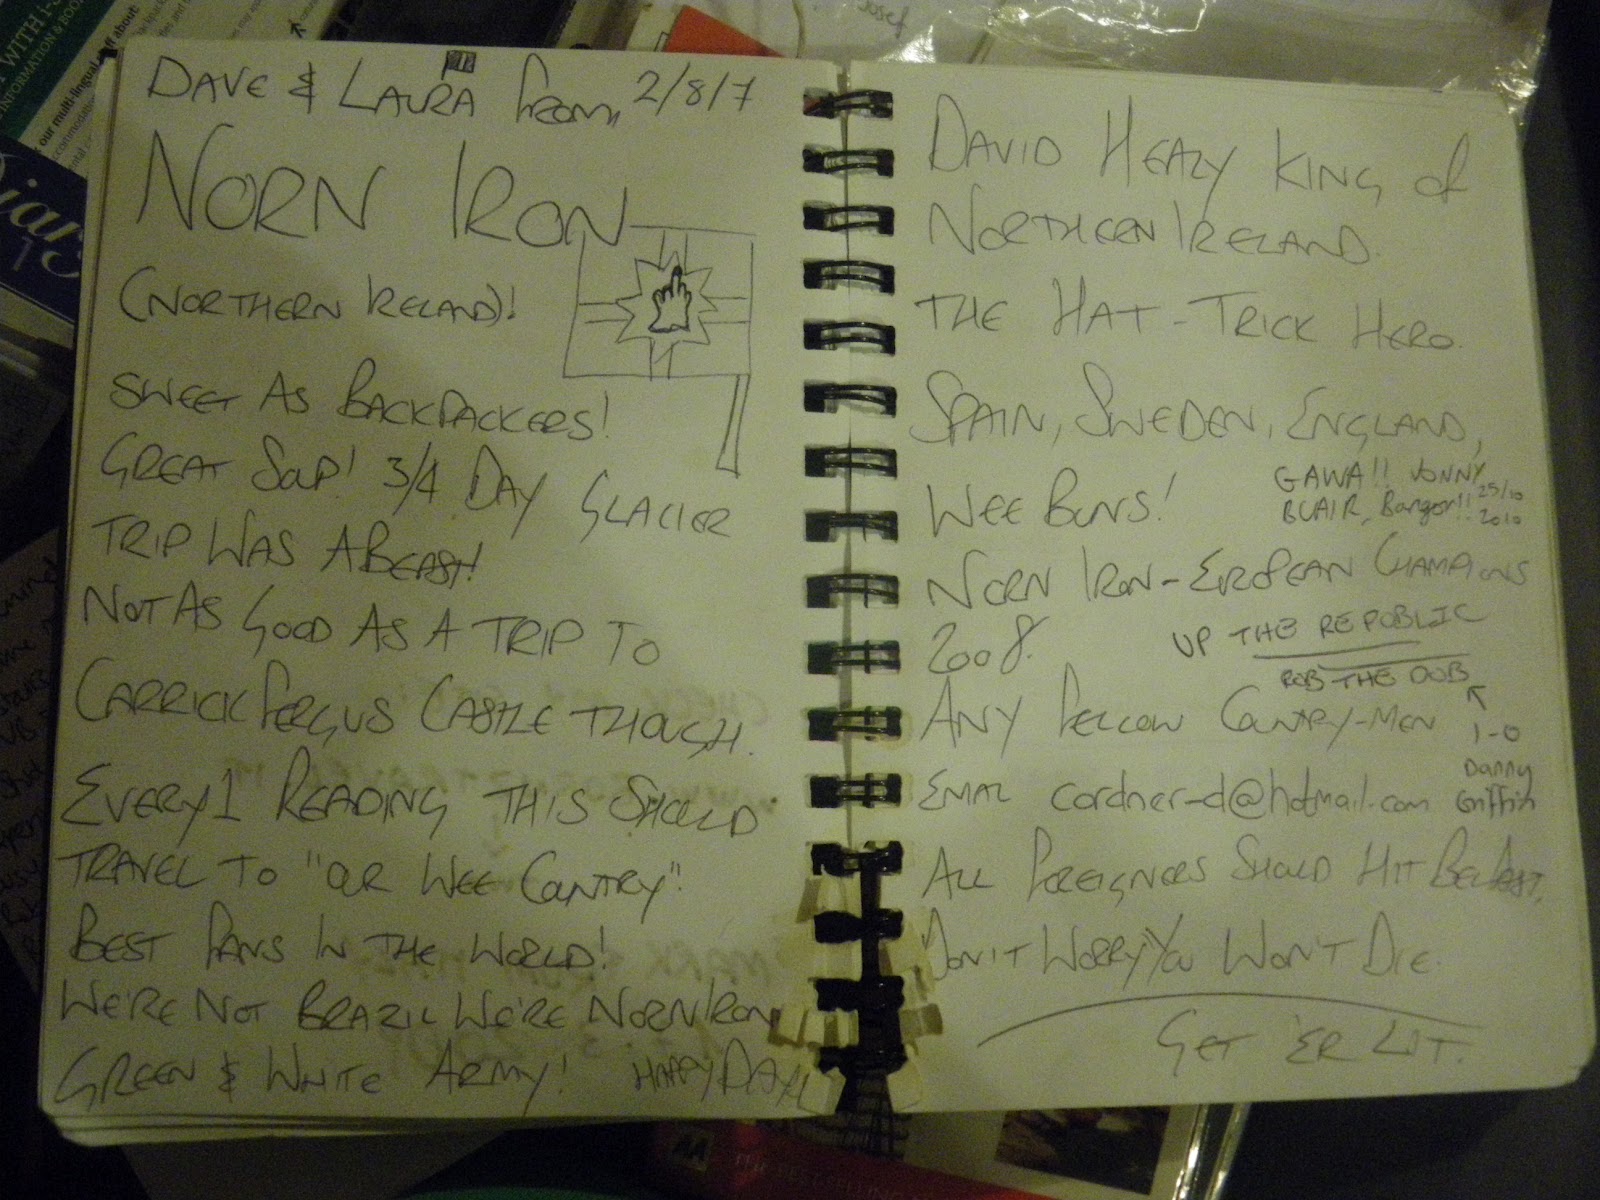 DAVE & LAURA FROM, 2/8/7
NORN IRON
(NORTHERN IRELAND)!
SWEET AS BACKPACKERS!
GREAT SOUP! 3/4 DAY GLACIER
TRIP WAS A BEAST!
NOT AS GOOD AS A TRIP TO
CARRICKFERGUS CASTLE THOUGH.
EVERY1 READING THIS SHOULD
TRAVEL TO "OUR WEE COUNTRY".
BEST FANS IN THE WORLD!
WE'RE NOT BRAZIL WE'RE NORN IRON
GREEN & WHITE ARMY! HAPPY DAYS
DAVID HEALY KING OF
NORTHERN IRELAND.
THE HAT-TRICK HERO.
SPAIN, SWEDEN, ENGLAND,
WEE BUNS!
GAWA!! JONNY
BLAIR, Bangor!! 25/10
2010
NORN IRON - EUROPEAN CHAMPIONS
2008.
UP THE REPUBLIC
ROB THE DOB
ANY FELLOW COUNTRY-MEN
1-0
Danny
Griffin
EMAIL cordner-d@hotmail.com
ALL FOREIGNERS SHOULD HIT BELFAST,
DON'T WORRY YOU WON'T DIE.
GET 'ER LIT.
WITH i-S
INFORMATION & BOO
our multi-lingual staff about:
accommoda
AA
Josef